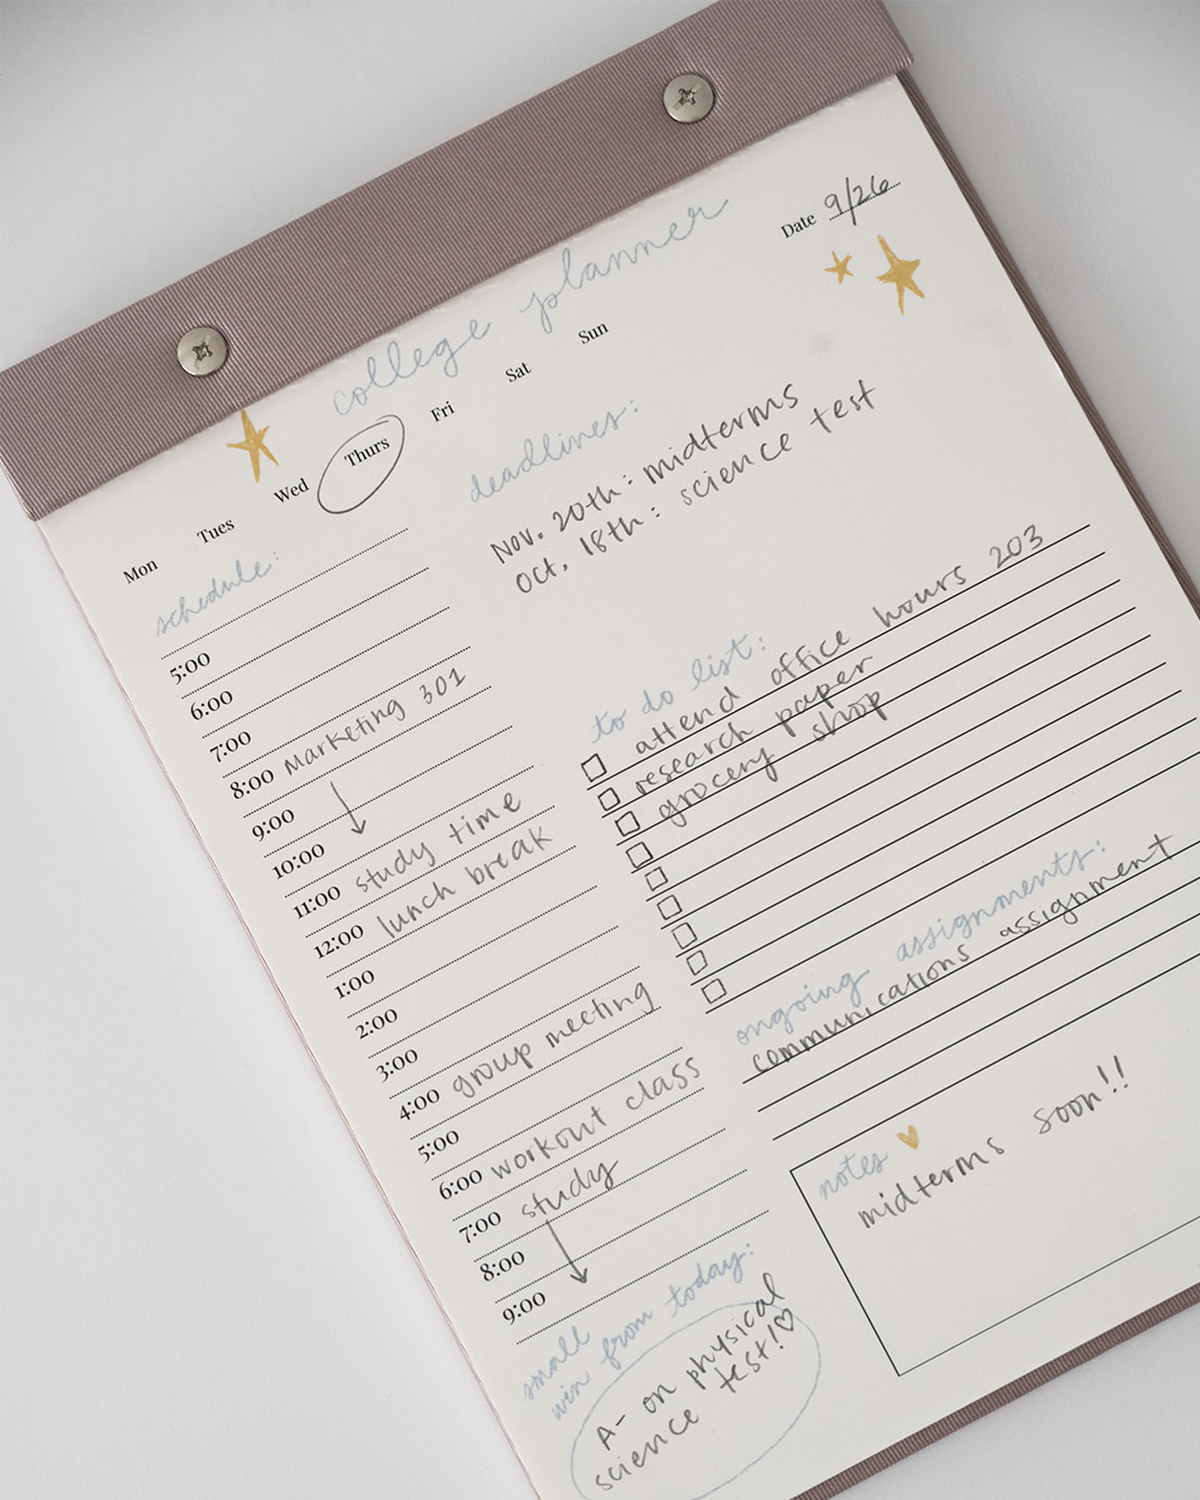 Date 9/26
college planner
Mon Tues Wed Thurs Fri Sat Sun
schedule:
5:00
6:00
7:00
8:00 Marketing 301
9:00
10:00
11:00 study time
12:00 lunch break
1:00
2:00
3:00
4:00 group meeting
5:00
6:00 workout class
7:00 study
8:00
9:00
small
win from today:
A- on physical
science test!
deadlines:
Nov. 20th: midterms
Oct. 18th: science test
to do list:
attend office hours 203
research paper
grocery shop
ongoing assignments:
communications assignment
notes
midterms soon!!